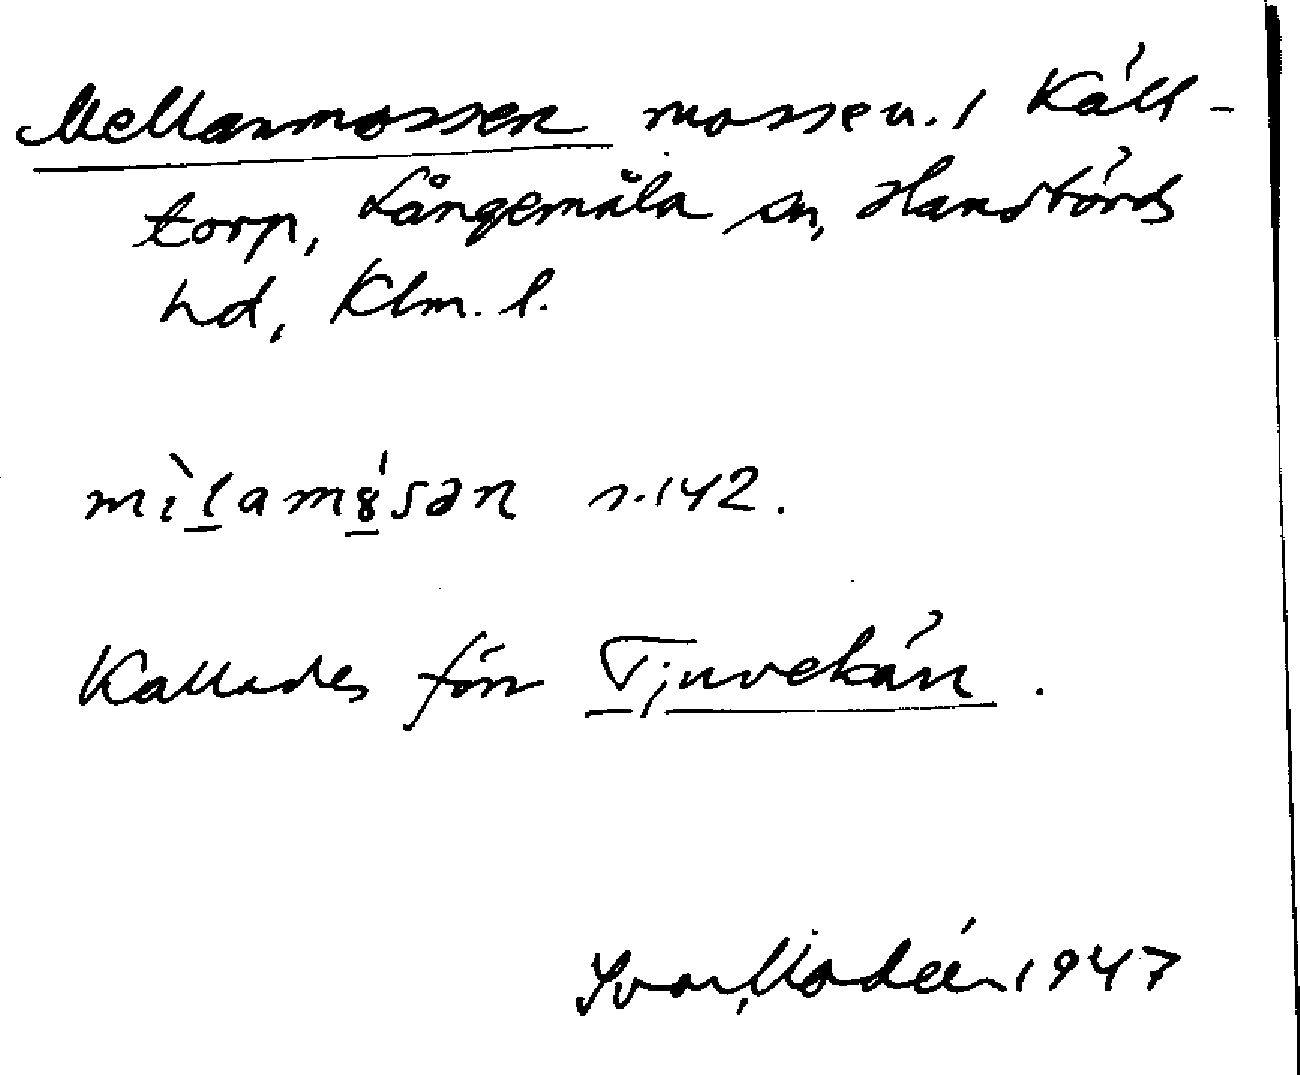 Mellanmossen mosse u. / Käll-
torp, Långemåla sn, Handbörds
hd, Klm. l.
mìlamósən s. 142.
Kallades förr Tjuvekärr.
Ivar Modéer 1947